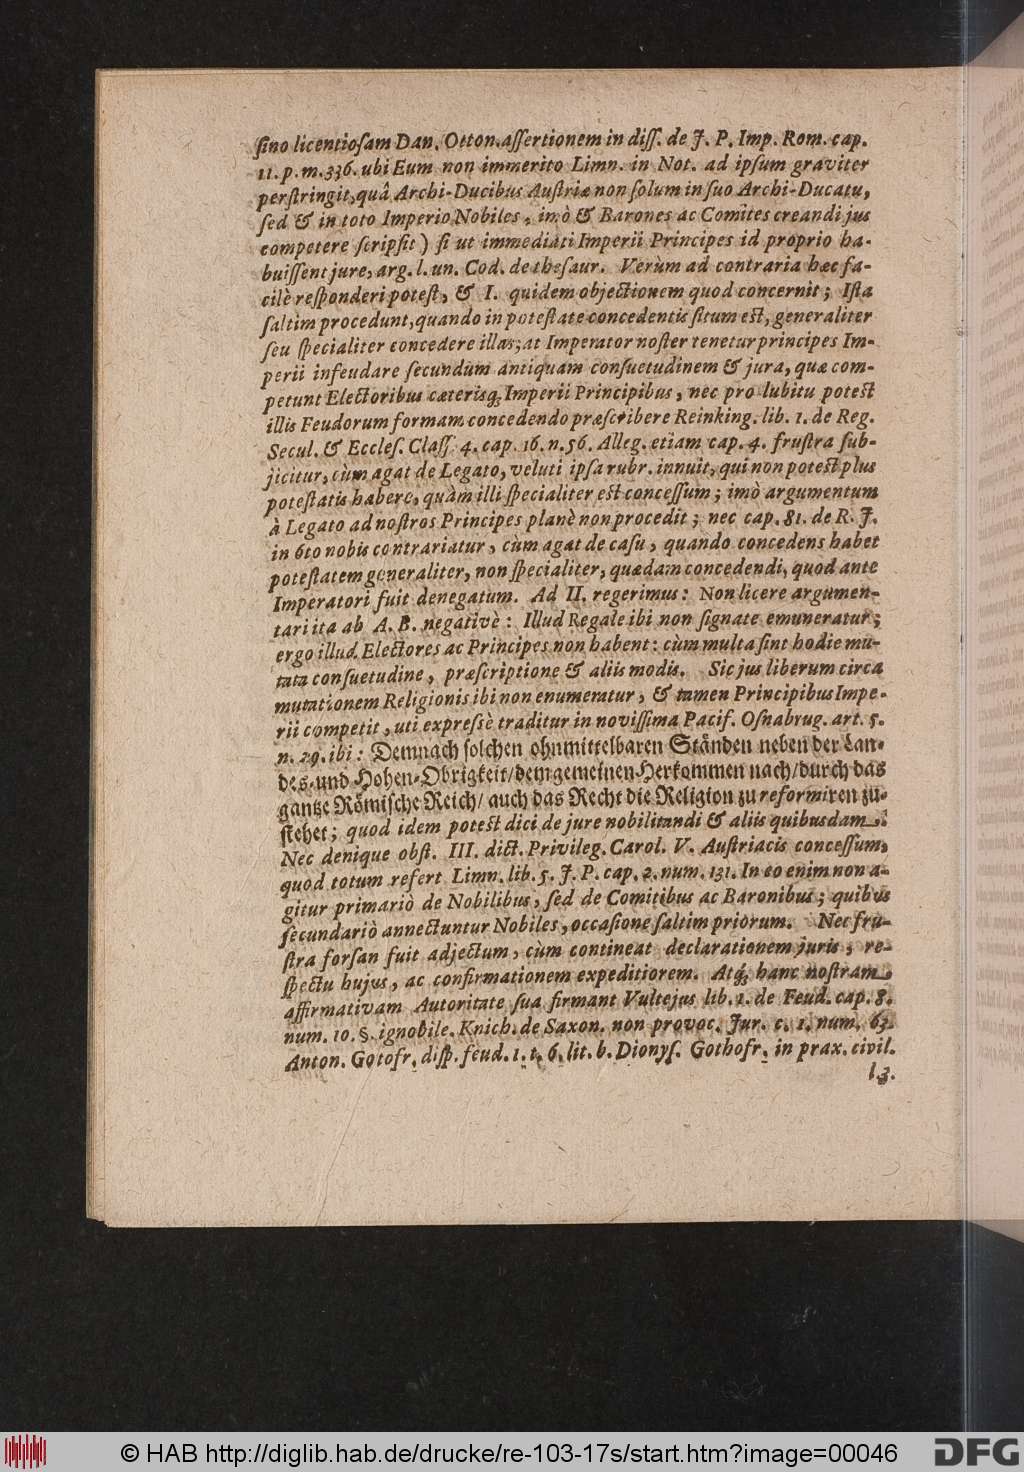 ſino licentioſam Dan. Otton. aſſertionem in diſſ. de J. P. Imp. Rom. cap.
11. p. m. 336. ubi Eum non immerito Limn. in Not. ad ipſum graviter
perſtringit, quâ Archi-Ducibus Auſtriæ non ſolum in ſuo Archi-Ducatu,
ſed & in toto Imperio Nobiles, imò & Barones ac Comites creandi jus
competere ſcripſit) ſi ut immediati Imperii Principes id proprio ha-
buiſſent jure, arg. l. un. Cod. de theſaur. Verùm ad contraria hæc fa-
cilè reſponderi poteſt, & I. quidem objectionem quod concernit; Iſta
ſaltim procedunt, quando in poteſtate concedentis ſitum eſt, generaliter
ſeu ſpecialiter concedere illas; at Imperator noſter tenetur principes Im-
perii infeudare ſecundum antiquam conſuetudinem & jura, quæ com-
petunt Electoribus cæterisq; Imperii Principibus, nec pro lubitu poteſt
illis Feudorum formam concedendo præſcribere Reinking. lib. 1. de Reg.
Secul. & Eccleſ. Claſſ. 4. cap. 16. n. 56. Alleg. etiam cap. 4. fruſtra ſub-
jicitur, cùm agat de Legato, veluti ipſa rubr. innuit, qui non poteſt plus
poteſtatis habere, quàm illi ſpecialiter eſt conceſſum; imò argumentum
à Legato ad noſtros Principes planè non procedit; nec cap. 81. de R. J.
in 6to nobis contrariatur, cùm agat de caſu, quando concedens habet
poteſtatem generaliter, non ſpecialiter, quædam concedendi, quod ante
Imperatori fuit denegatum. Ad II. regerimus: Non licere argumen-
tari ita ab A. B. negativè: Illud Regale ibi non ſignate enumeratur;
ergo illud Electores ac Principes non habent: cùm multa ſint hodie mu-
tata conſuetudine, præſcriptione & aliis modis. Sic jus liberum circa
mutationem Religionis ibi non enumeratur, & tamen Principibus Impe-
rii competit, uti expreſsè traditur in noviſſima Pacif. Oſnabrug. art. 5.
n. 29. ibi: Demnach ſolchen ohnmittelbaren Ständen neben der Lan-
des- und Hohen-Obrigkeit/ dem gemeinen Herkommen nach/ durch das
gantze Römiſche Reich/ auch das Recht die Religion zu reformiren zu-
ſtehet; quod idem poteſt dici de jure nobilitandi & aliis quibusdam.
Nec denique obſt. III. dict. Privileg. Carol. V. Auſtriacis conceſſum,
quod totum refert Limn. lib. 5. J. P. cap. 2. num. 131. In eo enim non a-
gitur primariò de Nobilibus, ſed de Comitibus ac Baronibus; quibus
ſecundariò annectuntur Nobiles, occaſione ſaltim priorum. Nec fru-
ſtra forſan fuit adjectum, cùm contineat declarationem juris, re-
ſpectu hujus, ac confirmationem expeditiorem. Atq; hanc noſtram
affirmativam Autoritate ſua firmant Vultejus lib. 1. de Feud. cap. 8.
num. 10. §. ignobile. Knich. de Saxon. non provoc. Jur. c. 1. num. 63.
Anton. Gotofr. diſp. feud. 1. t. 6. lit. b. Dionyſ. Gothofr. in prax. civil.
l. 3.
© HAB http://diglib.hab.de/drucke/re-103-17s/start.htm?image=00046
DFG